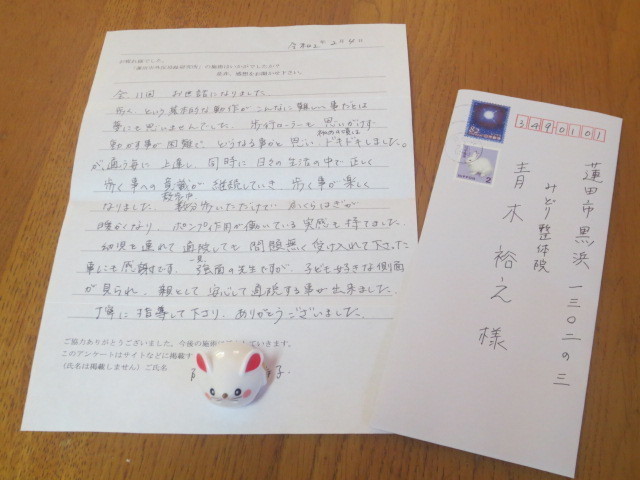 令和2年2月4日
お疲れ様でした。
是非、感想をお聞かせ下さい。
全11回 お世話になりました。
歩く、という基本的な動作が こんなに難しい事だとは
夢にも思いませんでした。歩行ローラーも 思いがけず
初回の頃は
動かす事が困難で どうなる事かと思い ドキドキしました。
が、通う毎に上達し、同時に 日々の生活の中で正しく
歩く事への意識が 継続していき 歩く事が楽しく
なりました。数分歩いただけで ふくらはぎが
暖かくなり、ポンプ作用が働いている実感も持てました。
幼児を連れて通院しても 問題無く受け入れて下さった
事にも感謝です。一見 強面の先生ですが、子ども好きな側面
が見られ、親として 安心して通院する事が出来ました。
丁寧に指導して下さり、ありがとうございました。
ご協力ありがとうございました。今後の施術に していきます。
このアンケートはサイトなどに掲載す
（氏名は掲載しません）ご氏名
子
82
2
3490101
蓮田市黒浜一三〇二の三
みどり整体院
青木裕之様